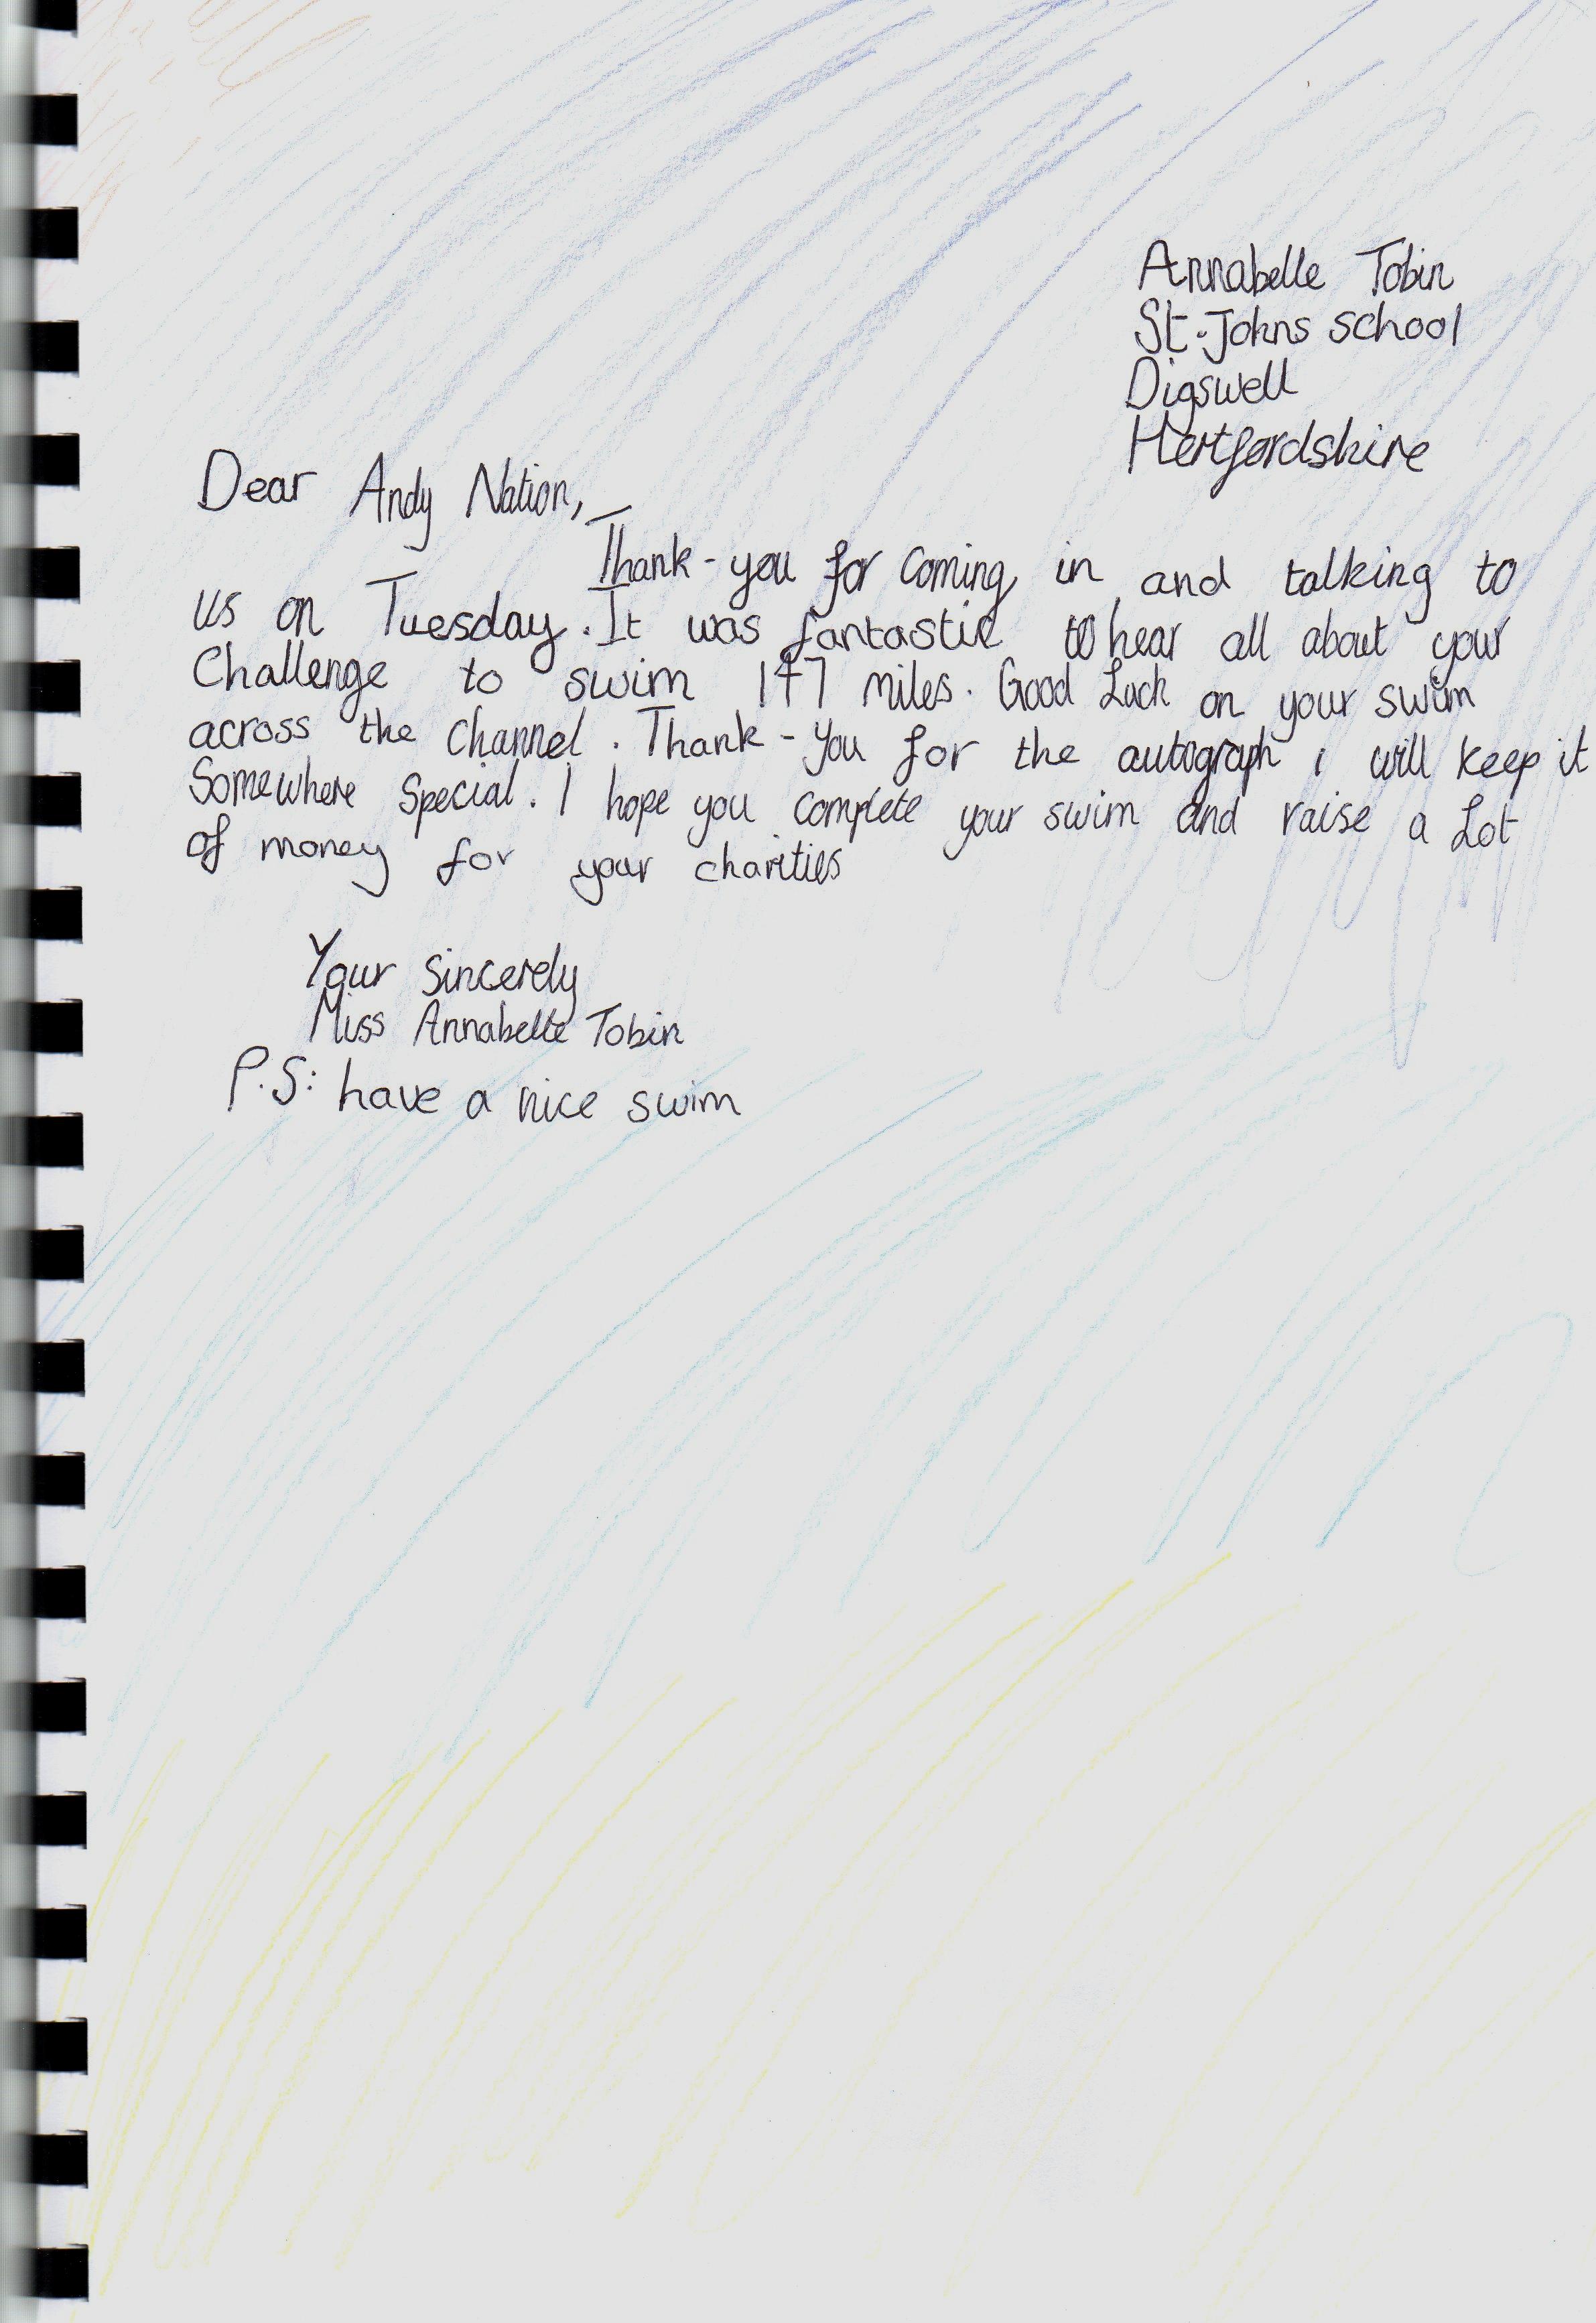 Annabelle Tobin
St. Johns school
Digswell
Hertfordshire
Dear Andy Nation,
Thank-you for coming in and talking to
us on Tuesday. It was fantastic to hear all about your
Challenge to swim 147 miles. Good Luck on your swim
across the Channel. Thank-you for the autograph i will keep it
Somewhere Special. I hope you complete your swim and raise a Lot
of money for your charities
Your Sincerely
Miss Annabelle Tobin
P.S: have a nice swim